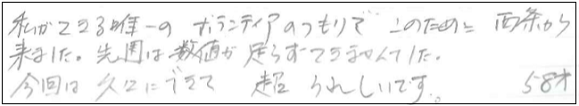 私ができる唯一の ボランティアのつもりで このために 西条から
来ました。先週は数値が足らずできませんでした。
今回は 久々にできて 超 うれしいです。 58才